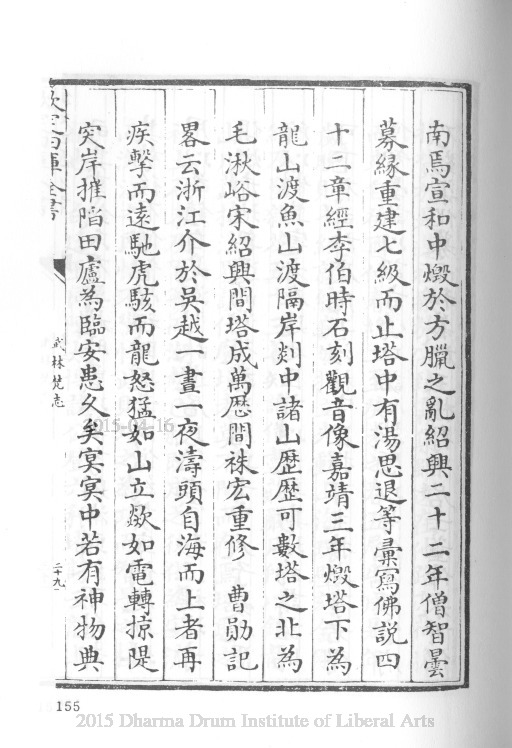 南焉宣和中燬於方臘之亂紹興二十二年僧智曇
募縁重建七級而止塔中有湯思退等彚寫佛説四
十二章經李伯時石刻觀音像嘉靖三年燬塔下為
龍山渡魚山渡隔岸剡中諸山歴歴可數塔之北為
毛湫峪宋紹興間塔成萬歴間袾宏重修　曹勛記
畧云浙江介於吳越一晝一夜濤頭自海而上者再
疾擊而遠馳虎駭而龍怒猛如山立欻如電轉掠隄
突岸摧陷田廬為臨安患久矣寞寞中若有神物典
欽定四庫全書
武林梵志
二十九
155
2015-04-16
2015 Dharma Drum Institute of Liberal Arts